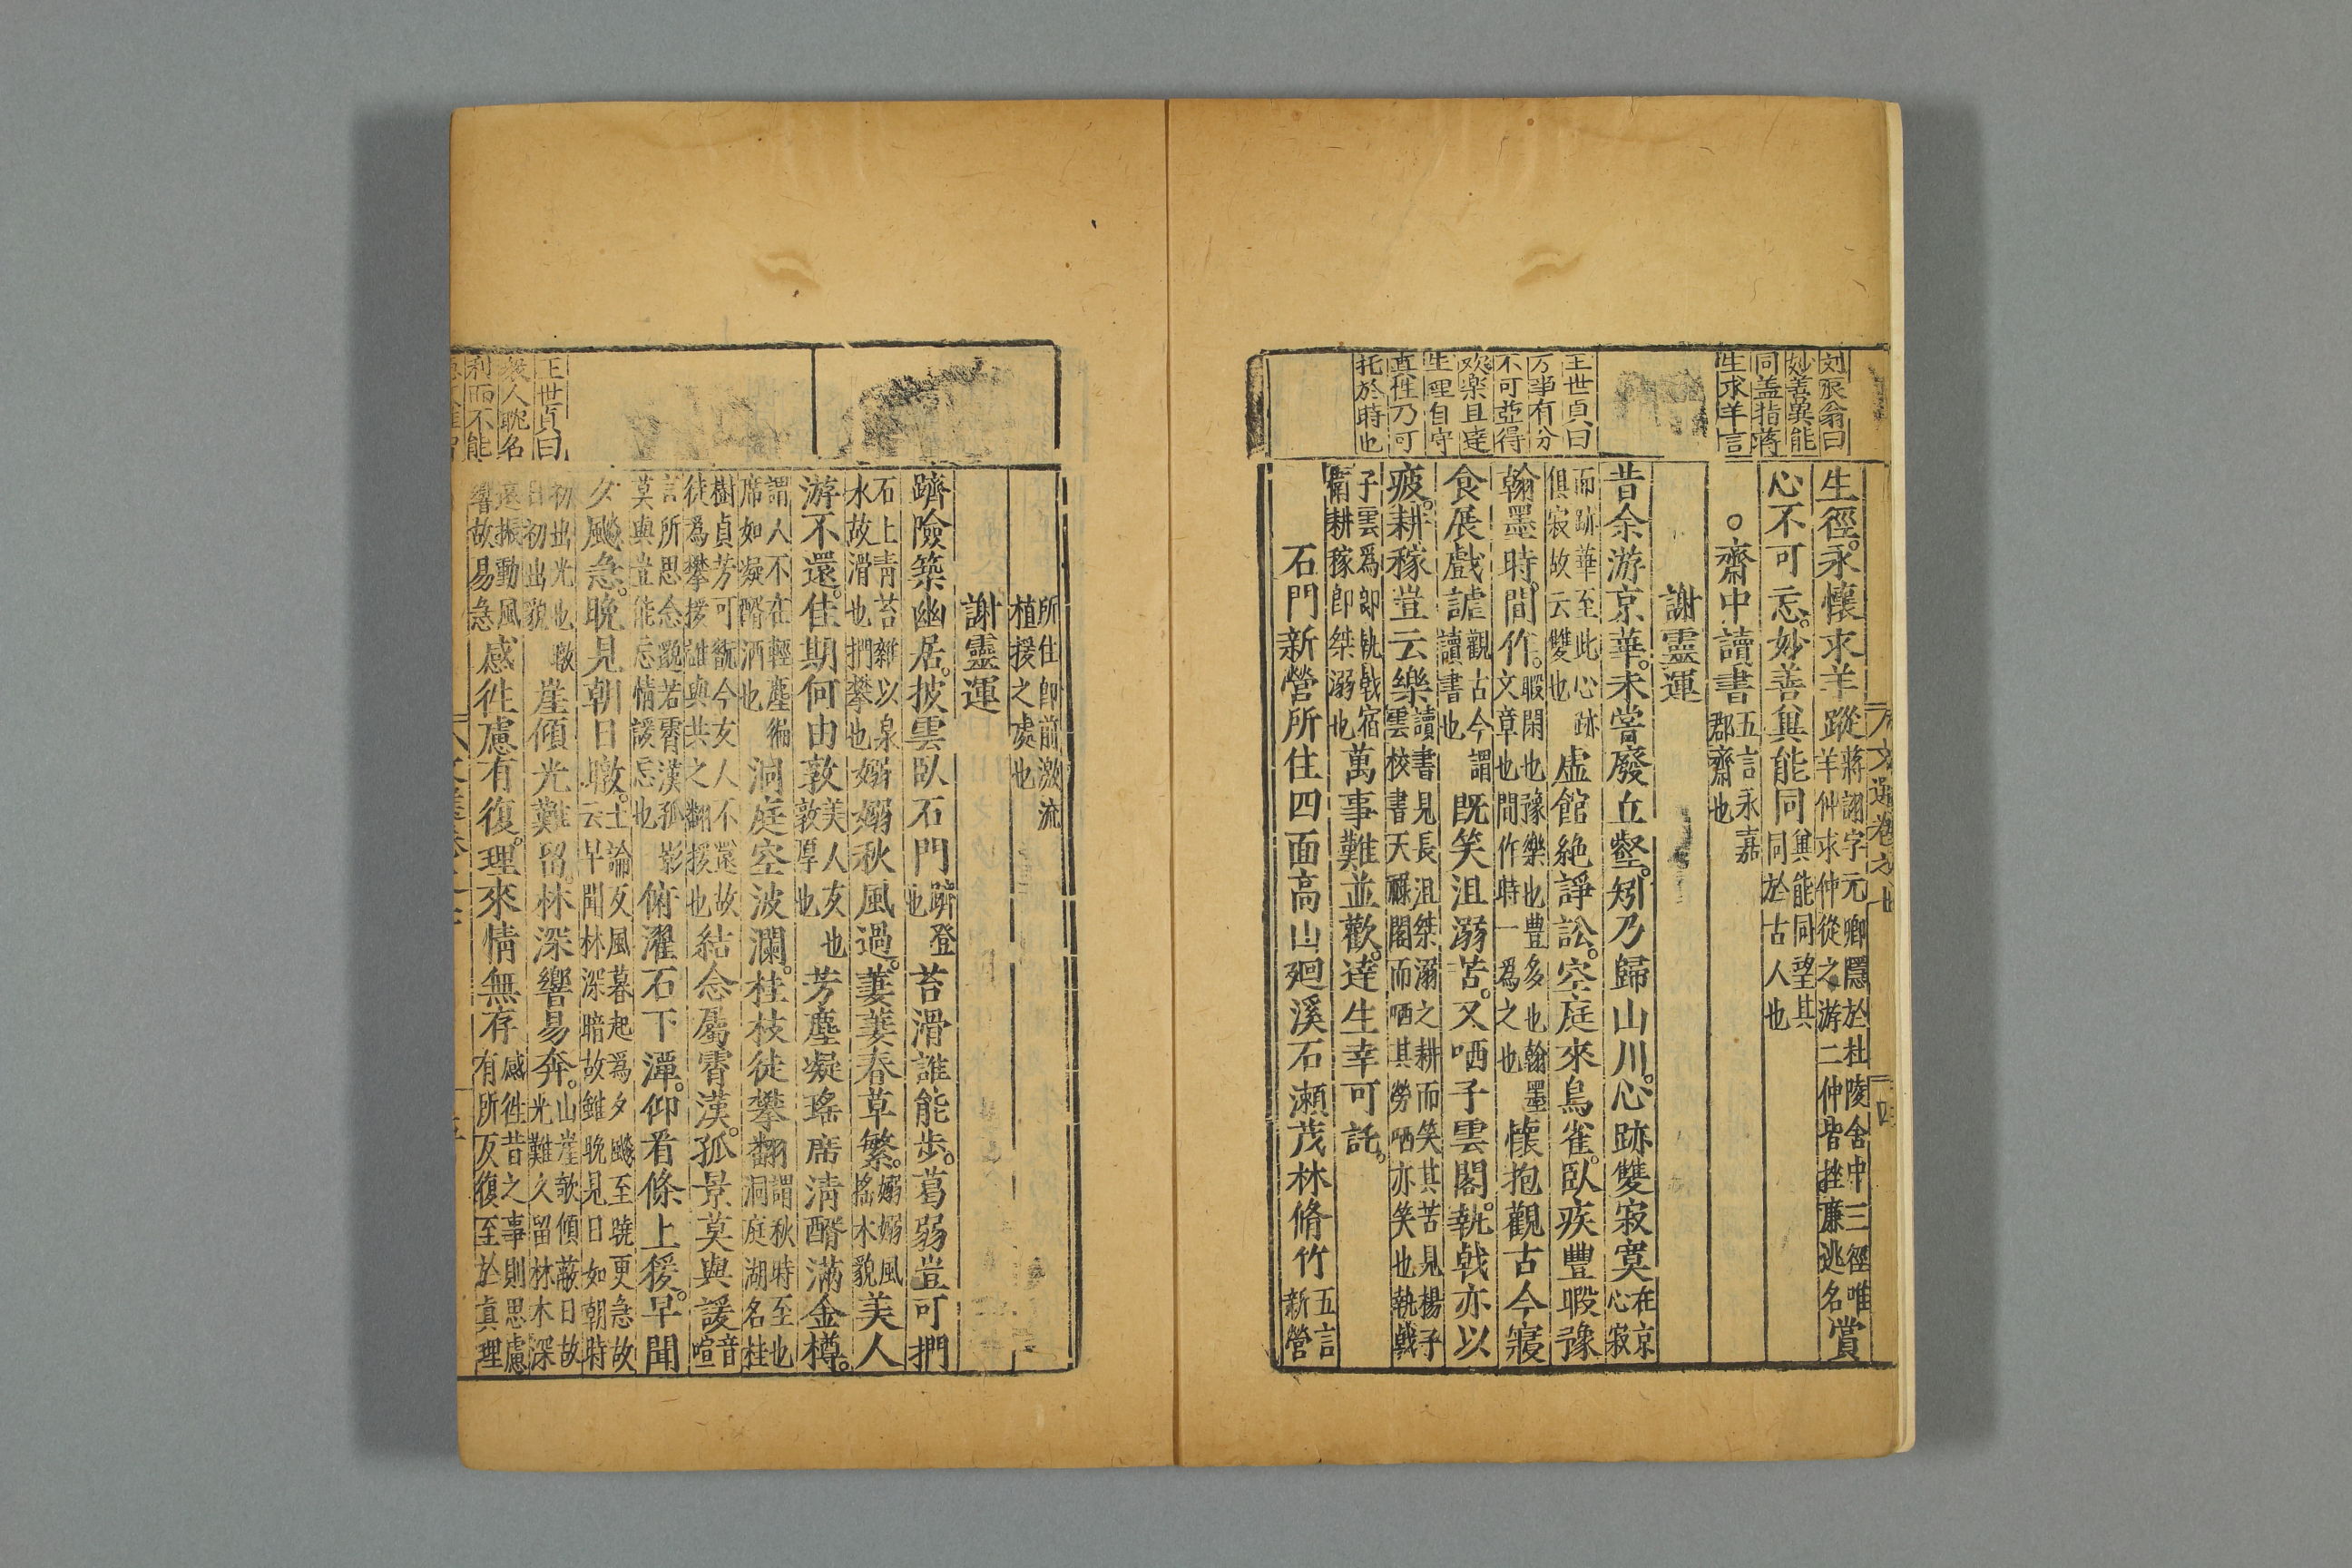 刘辰翁曰
妙善冀能
同盖指蒋
生求羊言
王世貞曰
万事有分
不可亞得
欢楽且達
生理自守
真性乃可
托於時也
生徑。永懷求羊蹤蔣詡字元卿隱於杜陵舍中三徑唯羊仲求仲從之游二仲皆挫廉逃名賞
心不可忘。妙善兾能同兾能同望其同於古人也
○齋中讀書五言永嘉郡齋也
謝靈運
昔余游京華。未嘗廢丘壑。矧乃歸山川。心跡雙寂寞在京心寂
而跡華至此心跡俱寂故云雙也虛館絶諍訟。空庭來鳥雀。臥疾豐暇豫
翰墨時。間作。暇閑也豫樂也豐多也翰墨文章也間作時一爲之也懷抱觀古今寢
食展戲謔觀古今謂讀書也既笑沮溺苦。又哂子雲閣。執戟亦以
疲。耕稼豈云樂讀書見長沮桀溺之耕而笑其苦見楊子雲校書天祿閣而哂其勞哂亦笑也執戟
子雲爲郎執戟宿衞耕稼即桀溺也萬事難並歡。達生幸可託。
石門新營所住四面高山廻溪石瀬茂林脩竹五言新營
所住即前激流植援之處也
謝靈運
躋險築幽居。披雲臥石門躋登也苔滑誰能步。葛弱豈可捫
石上青苔雜以泉水故滑也捫攀也嫋嫋秋風過。萋萋春草繁。嫋嫋風搖木貌美人
游不還。佳期何由敦美人友也敦厚也芳塵凝瑤席清醑滿金樽。
謂人不在輕塵徧席如凝醑酒也洞庭空波瀾。桂枝徒攀翻謂秋時至也洞庭湖名桂
樹貞芳可翫今友人不還故徒爲攀援誰與共之翻援也結念屬霄漢。孤景莫與諼音喧
言所思念邈若霄漢孤影莫與豈能忘情諼忘也俯濯石下潭。仰看條上猨。早聞
夕飈急。晚見朝日暾。士論友風暮起爲夕飈至曉更急故云早聞林深暗故雖晚見日如朝時
初出光也暾日初出貌崖傾光難留。林深響易奔。山崖欹傾蔽日故光難久留林木深
遠振動風響故易急感徃慮有復。理來情無存感徃昔之事則思慮有所反復至於真理
王世貞曰
衆人耽名
利而不能